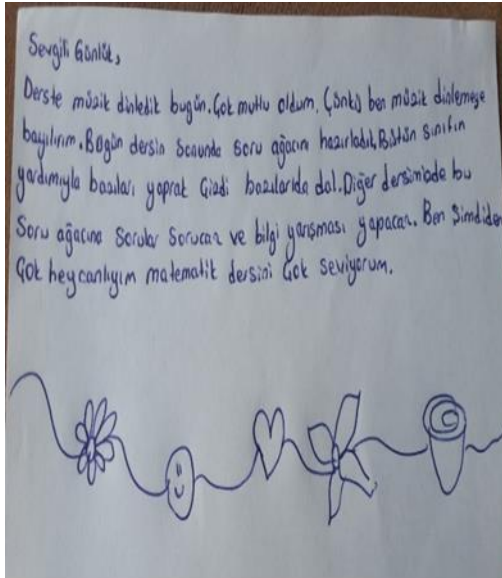 Sevgili Günlük,
Derste müzik dinledik bugün. Çok mutlu oldum. Çünkü ben müzik dinlemeye
bayılırım. Bugün dersin sonunda soru ağacını hazırladık. Bütün sınıfın
yardımıyla bazıları yaprak çizdi bazılarıda dal. Diğer dersimizde bu
Soru ağacına sorular sorucaz ve bilgi yarışması yapacaz. Ben Şimdiden
Çok heycanlıyım matematik dersini Çok seviyorum.